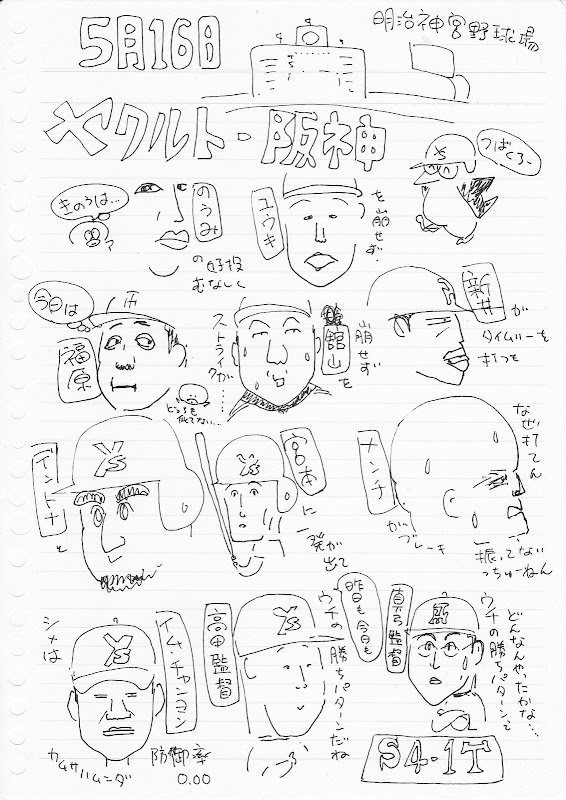 5月16日
明治神宮野球場
ヤクルト・阪神
つばくろー
きのうは…
のうみ
の好投
むなしく
ユウキ
を崩せず…
今日は
福原
どうも
似てない…
ストライクが……
館山
を
崩せず
新井
が
タイムリーを
打つも
Ys
デントナ
と
Ys
宮本
に
一発が出て
メンチ
が
ブレーキ
なぜ打てん
振ってない
っちゅーねん
シメは
Ys
イム・チャンヨン
カムサハムニダ
防御率
0.00
高田監督
Ys
ウチの勝ちパターンだね
昨日も今日も
真弓監督
どんなんやったかな…
ウチの勝ちパターンて
S4-1T